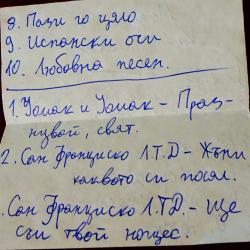 8. Пази го цяло
9. Испански очи
10. Любовна песен.
1. Уошак и Уошак - Праз-
нувай, свят.
2. Сан Франциско Л.Т.Д - Жъни
каквото си посял.
Сан Франциско Л.Т.Д. - Ще
съм твой нощес.